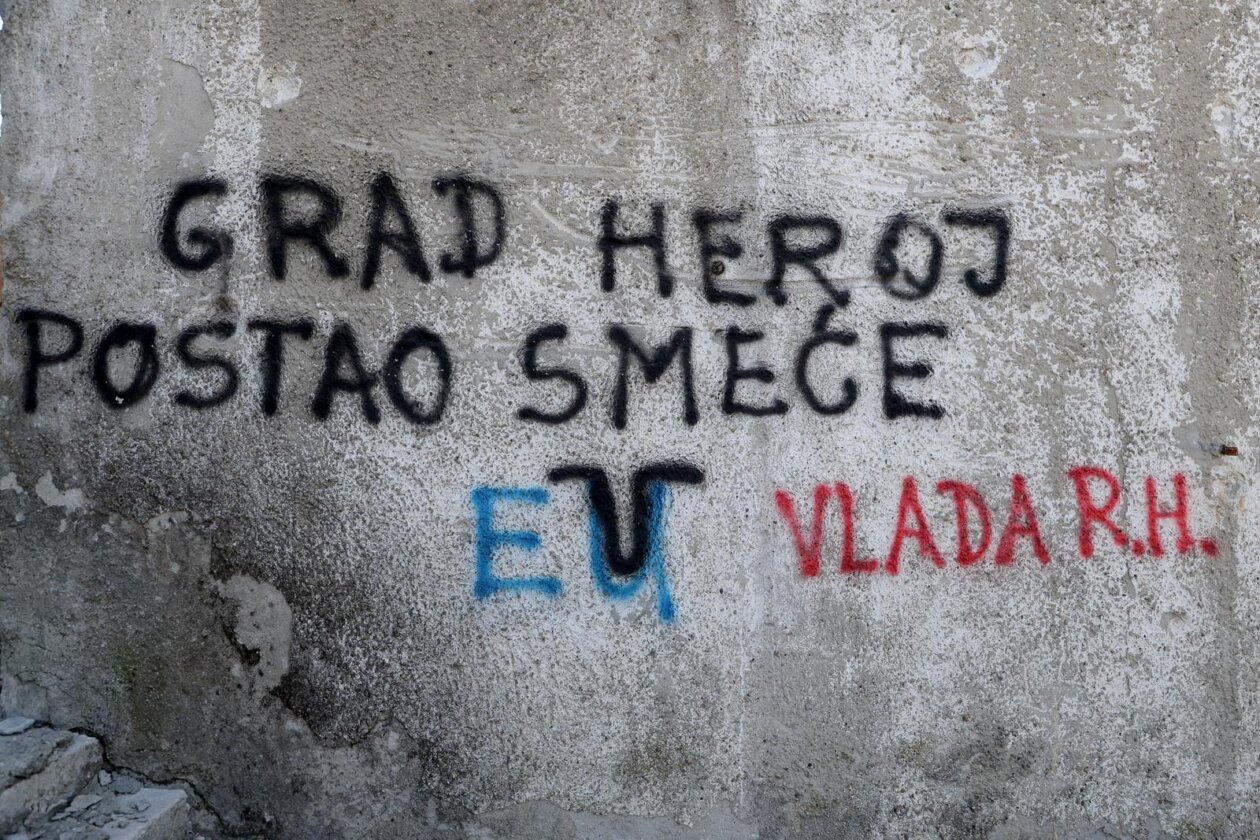 GRAD HEROJ
POSTAO SMEĆE
EU VLADA R.H.